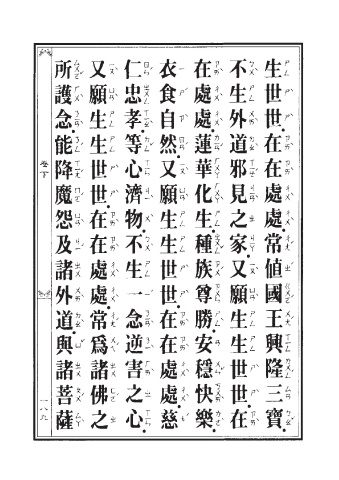 生世世。在在處處。常值國王興隆三寶。
不生外道邪見之家。又願生生世世。在
在處處。蓮華化生。種族尊勝。安穩快樂。
衣食自然。又願生生世世。在在處處。慈
仁忠孝。等心濟物。不生一念逆害之心。
又願生生世世。在在處處。常為諸佛之
所護念。能降魔怨及諸外道。與諸菩薩
卷下
一八九